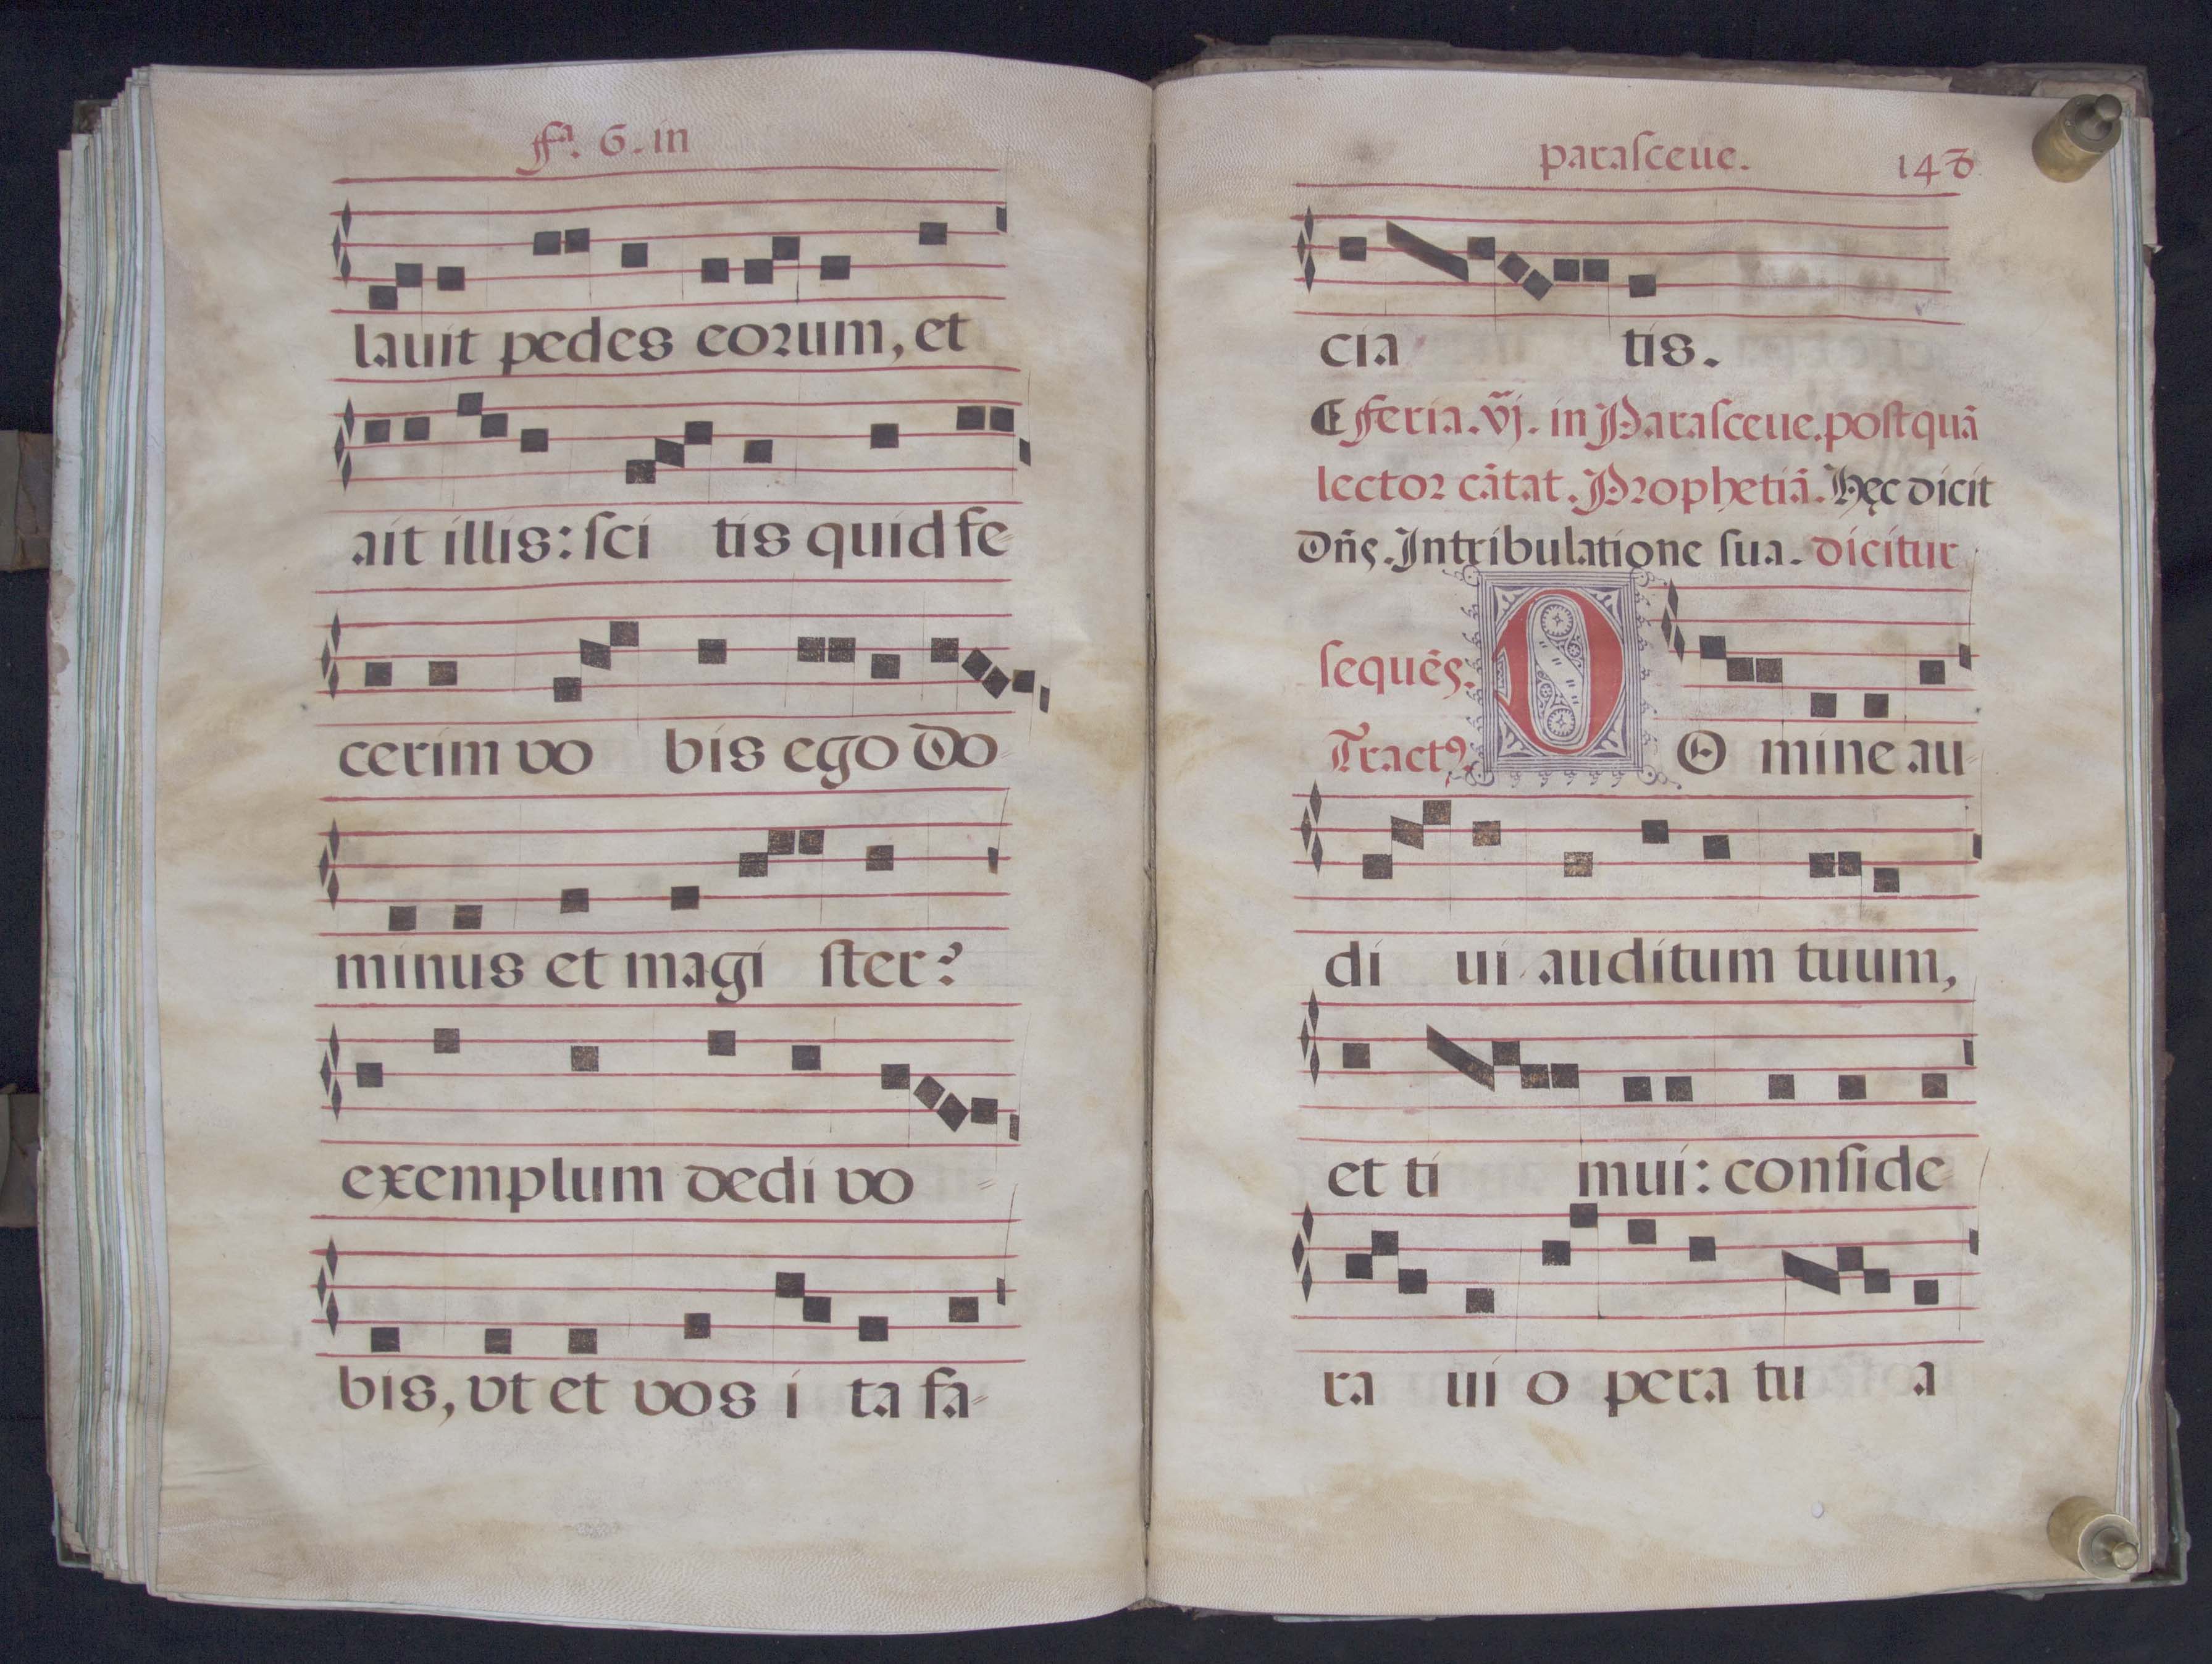 ffª. 6. in
lauit pedes eorum, et
ait illis: ſci tis quid fe
cerim vo bis ego Do
minus et magi ſter?
exemplum dedi vo
bis, vt et vos i ta fa
paraſceue. 148
cia tis.
Feria. vj. in Paraſceue. poſtquã
lector cãtat. Prophetiã. Hęc dicit
Dñs. In tribulatione ſua. dicitur
ſequẽs.
Tractꝰ. D O mine au
di ui auditum tuum,
et ti mui: conſide
ra ui o pera tu a